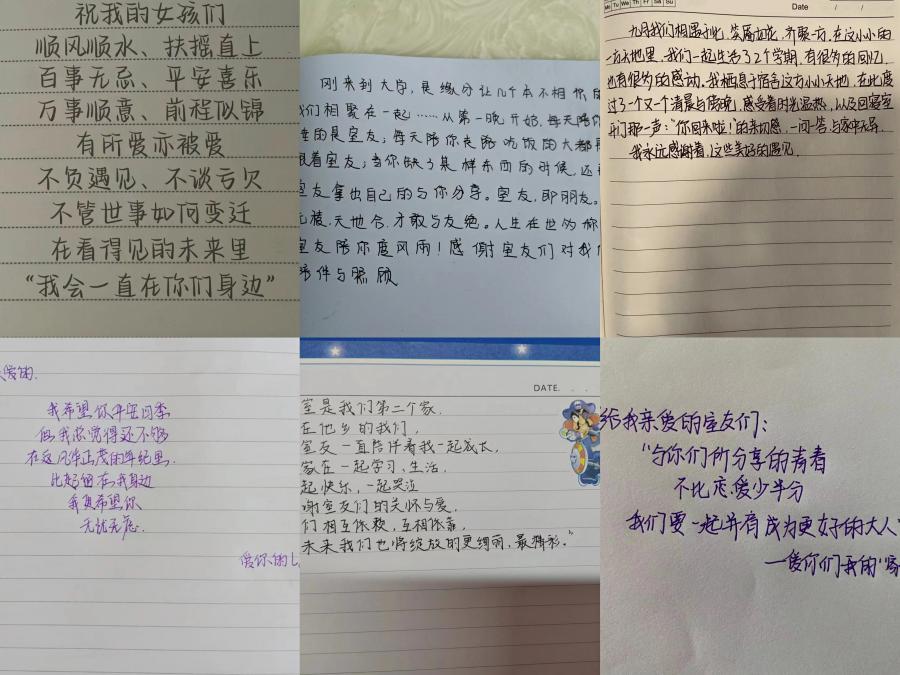 祝我的女孩们
顺风顺水、扶摇直上
百事无忌、平安喜乐
万事顺意、前程似锦
有所爱亦被爱
不负遇见、不谈亏欠
不管世事如何变迁
在看得见的未来里
“我会一直在你们身边”
刚来到大学,是缘分让几个本不相你的
我们相聚在一起……从第一晚开始,每天陪你
睡的是室友;每天陪你走路吃饭的大都
跟着室友;当你缺了某样东西的时候,还
室友拿出自己的与你分享。室友,即朋友。
天地合,才敢与友绝。人生在世
室友陪你度风雨!感谢室友们对我
陪伴与照顾
Date / /
九月我们相遇于此,笑靥如花,齐聚一方,在这小小的
一方天地里,我们一起生活了2个学期,有很多的回忆,
也有很多的感动。我栖息于宿舍这方小小天地,在此度
过了一个又一个清晨与傍晚,感受着时光温热,以及回寝室
开门那一声:“你回来啦!”的亲切感,一问一答,与家中无异。
我永远感谢着,这些美好的遇见.
爱的.
我希望你平安四季
但我总觉得还不够
在这风华正茂的年纪里
比好的在我身边
我更希望你
无忧无虑.
爱你的
DATE. . .
室是我们第二个家.
在他乡的我们,
室友一直陪伴着我一起成长,
家在一起学习、生活,
起快乐,一起哭泣
谢室友们的关怀与爱.
们相互依赖,互相依靠,
未来我们也将绽放的更绚丽,最精彩.”
给我亲爱的室友们:
“与你们所分享的青春
不比恋爱少半分
我们要一起并肩成为更好的大人”
—爱你们我的“家